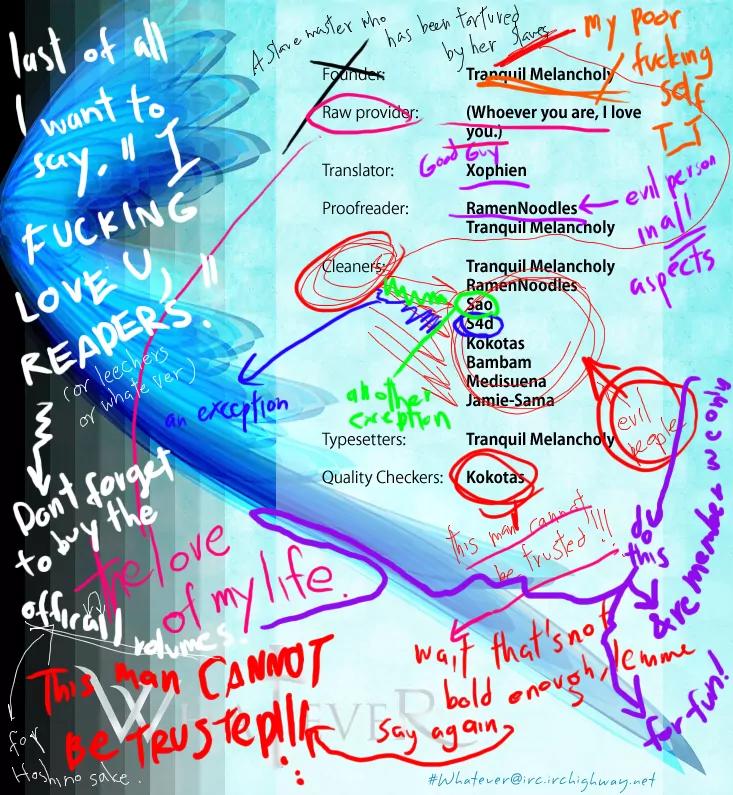 A slave master who
has been tortured
by her slaves
Founder: Tranquil Melancholy
my poor
fucking
self
T_T
Raw provider: (Whoever you are, I love
you.)
Good Guy
Translator: Xophien
Proofreader: RamenNoodles
Tranquil Melancholy
evil person
in all
aspects
Cleaners: Tranquil Melancholy
RamenNoodles
Sao
S4d
Kokotas
Bambam
Medisuena
Jamie-Sama
evil
people
an exception
another
exception
Typesetters: Tranquil Melancholy
Quality Checkers: Kokotas
this man cannot
be trusted!!!!
last of all
I want to
say, "I
FUCKING
LOVE U,
READERS."
(or leechers
or whatever)
Dont forget
to buy the
official
volumes.
for
Hoshino sake.
the love
of my life.
wait that's not
bold enough, lemme
say again
This man CANNOT
BE TRUSTED!!!
& remember we only
do
this
for fun!
WHATEVER
#Whatever@irc.irchighway.net